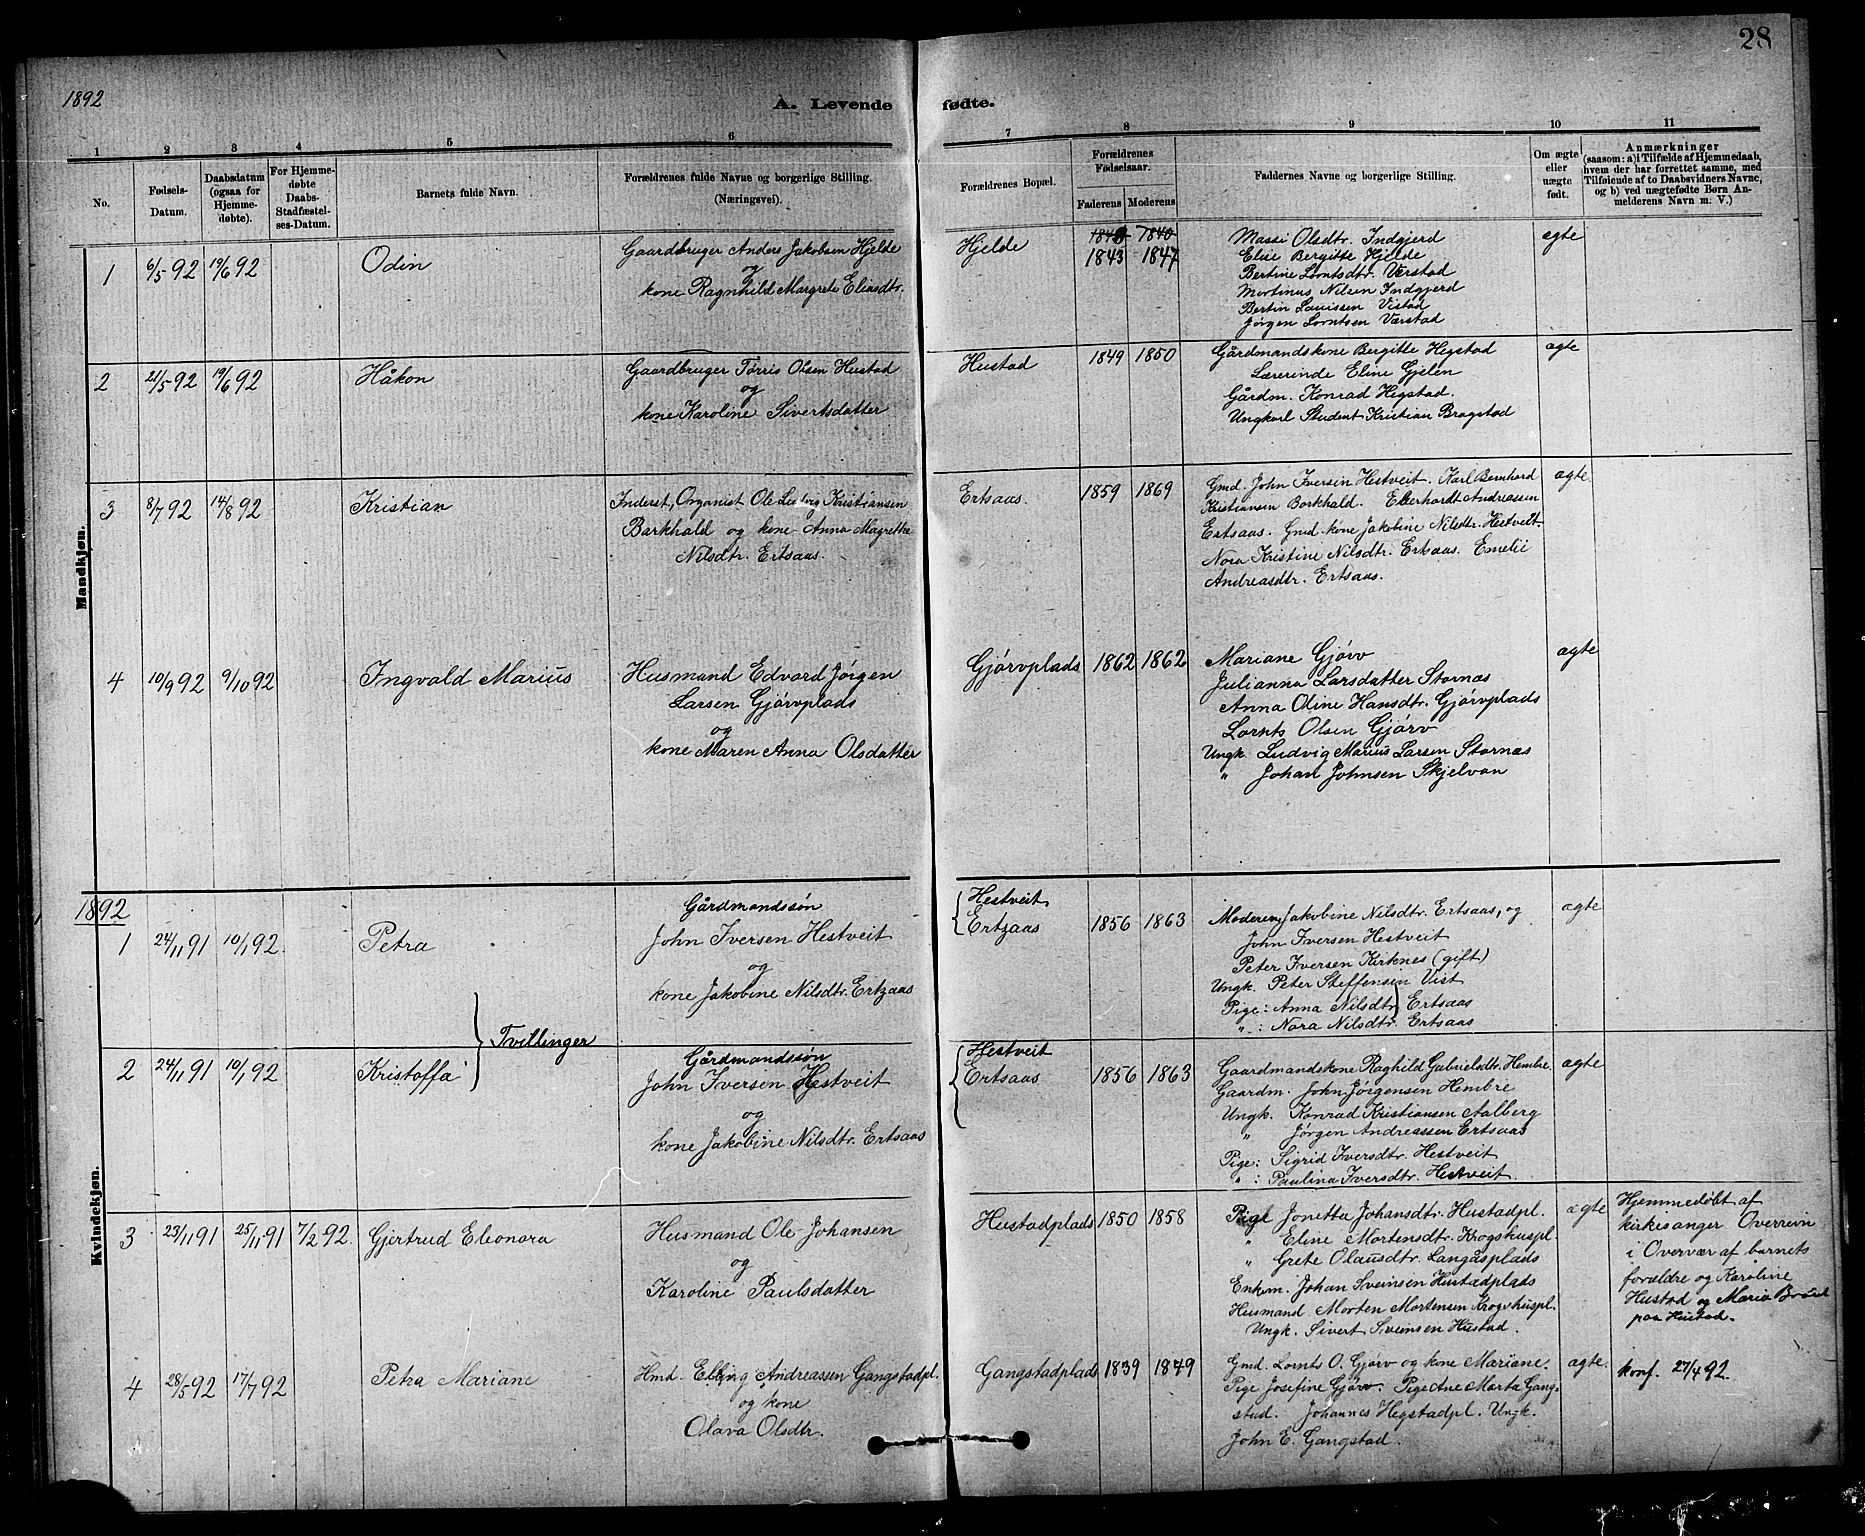 28
1892
A. Levende fødte.
1 2 3 4 5 6 7 8 9 10 11
No.
Fødsels-
Datum.
Daabsdatum
(ogsaa for
Hjemme-
døbte).
For Hjemme-
døbte
Daabs-
Stadfæstel-
ses-Datum.
Barnets fulde Navn.
Forældrenes fulde Navne og borgerlige Stilling.
(Næringsvei).
Forældrenes Bopæl.
Forældrenes
Fødselsaar.
Faderens Moderens
Faddernes Navne og borgerlige Stilling.
Om ægte
eller
uægte
født.
Anmærkninger
(saasom: a) i Tilfælde af Hjemmedaab,
hvem der har forrettet samme, med
Tilføiende af to Daabsvidners Navne,
og b) ved uægtefødte Børn An-
melderens Navn m: V.)
Mandkjøn.
1 6/5 92 19/6 92 Odin
Gaardbruger Anders Jakobsen Hjelde
og
kone Ragnhild Margrete Eliasdtr.
Hjelde
1840
1843 1847
Massi Olsdtr. Indgjerd
Eline Bergitte Hjelde
Bertine Lorntsdtr. Værstad
Martinus Nilsen Indgjerd
Bertin Lauissen Vistad
Jørgen Lorntsen Værstad
ægte
2 21/5 92 19/6 92 Håkon
Gaardbruger Tørris Olsen Hustad
og
kone Karoline Sivertsdatter
Hustad 1849 1850
Gårdmandskone Bergitte Hegstad
Lærerinde Eline Gjelen
Gårdm. Konrad Hegstad.
Ungkarl Student Kristian Bragstad
ægte
3 8/7 92 14/8 92 Kristian
Inderst, Organist Ole Ludvig Kristiansen
Barkhald og kone Anna Magrethe
Nilsdtr. Ertsaas.
Ertsaas. 1859 1869
Gmd. John Iversen Hestveit. Karl Bernhard
Kristiansen Borkhald. Eberhardt Andreassen
Ertsaas. Gmd. kone Jakobine Nilsdtr. Hestveit
Nora Kristine Nilsdtr. Ertsaas. Emelie
Andreasdtr. Ertsaas.
ægte
4 10/9 92 9/10 92 Ingvald Marius
Husmand Edvard Jørgen
Larsen Gjørvplads
og
kone Maren Anna Olsdatter
Gjørvplads 1862 1862
Mariane Gjørv
Julianna Larsdatter Stornæs
Anna Oline Hansdtr. Gjørvplads
Lornts Olsen Gjørv
Ungk. Ludvig Marius Larsen Stornæs
" Johan Johnsen Skjelvan
ægte
Kvindekjøn.
1892
1 24/11 91 10/1 92 Petra
Gårdmandssøn
John Iversen Hestveit
og
kone Jakobine Nilsdtr. Ertzaas
Hestveit
Ertzaas 1856 1863
Moderen, Jakobine Nilsdtr. Ertsaas, og
John Iversen Hestveit
Peter Iversen Kirknes (gift)
Ungk. Peter Steffensen Vist
Pige: Anna Nilsdtr. Ertsaas
" : Nora Nilsdtr. Ertsaas
ægte
Tvillinger
2 24/11 91 10/1 92 Kristoffa
Gårdmandssøn
John Iversen Hestveit
og
kone Jakobine Nilsdtr. Ertsaas
Hestveit
Ertsaas 1856 1863
Gaardmandskone Raghild Gabrielsdtr. Hembre
Gaardm. John Jørgensen Hembre
Ungk. Konrad Kristiansen Aalberg
" Jørgen Andreassen Ertsaas
Pige: Sigrid Iversdtr. Hestveit
" : Paulina Iversdtr. Hestveit.
ægte
3 23/11 91 25/11 91 7/2 92. Gjertrud Eleonora
Husmand Ole Johansen
og
Karoline Paulsdatter
Hustadplads 1850 1858
Pige Jonetta Johansdtr. Hustadpl.
" Eline Mortensdtr. Krogshuspl.
" Grete Olausdtr. Langåsplads
Enkm. Johan Sveinsen Hustadplads
Husmand Morten Mortensen Krogshuspl.
Ungk. Sivert Sveinsen Hustad.
ægte
Hjemmedøbt af
kirkesanger Overrein
i Overvær af barnets
forældre og Karoline
Hustad og Maria
paa Hustad.
4 28/5 92 17/7 92 Petra Mariane
Hmd. Elling Andreassen Gangstadpl.
og kone
Olava Olsdtr.
Gangstadplads 1839 1849
Gmd. Lornts O. Gjørv og kone Mariane.
Pige Josefine Gjørv. Pige Ane Marta Gang-
stad. Johannes Hegstadpl. Ungk.
John E. Gangstad.
ægte.
konf. 27/4 92.